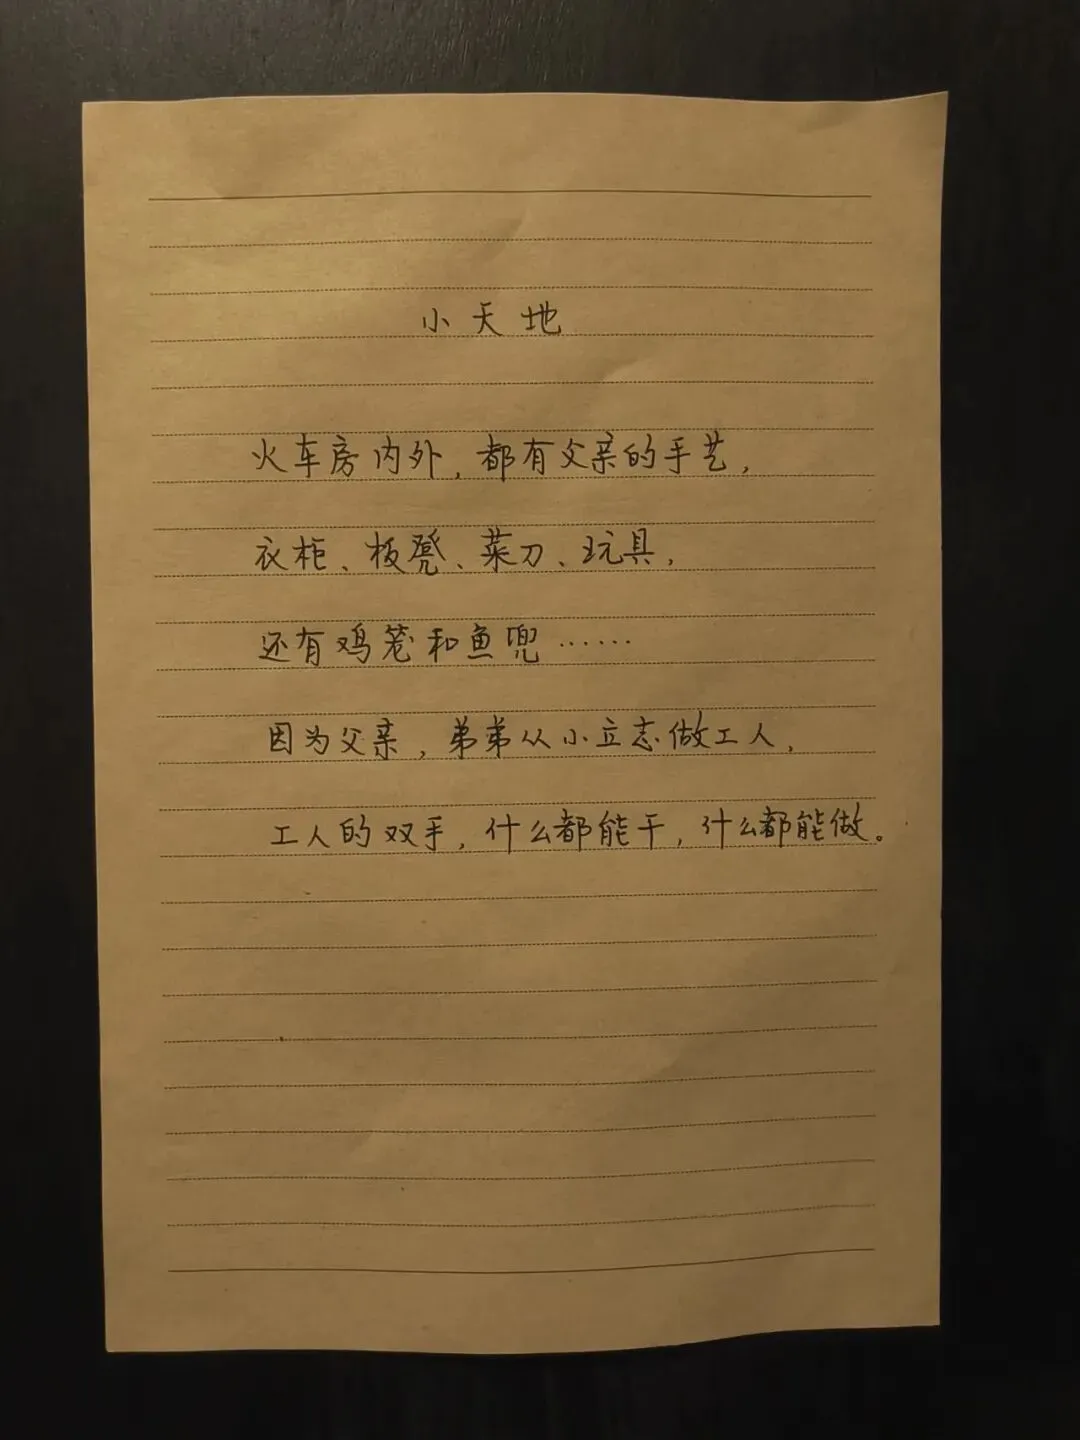 小天地
火车房内外,都有父亲的手艺,
衣柜、板凳、菜刀、玩具,
还有鸡笼和鱼兜……
因为父亲,弟弟从小立志做工人,
工人的双手,什么都能干,什么都能做。